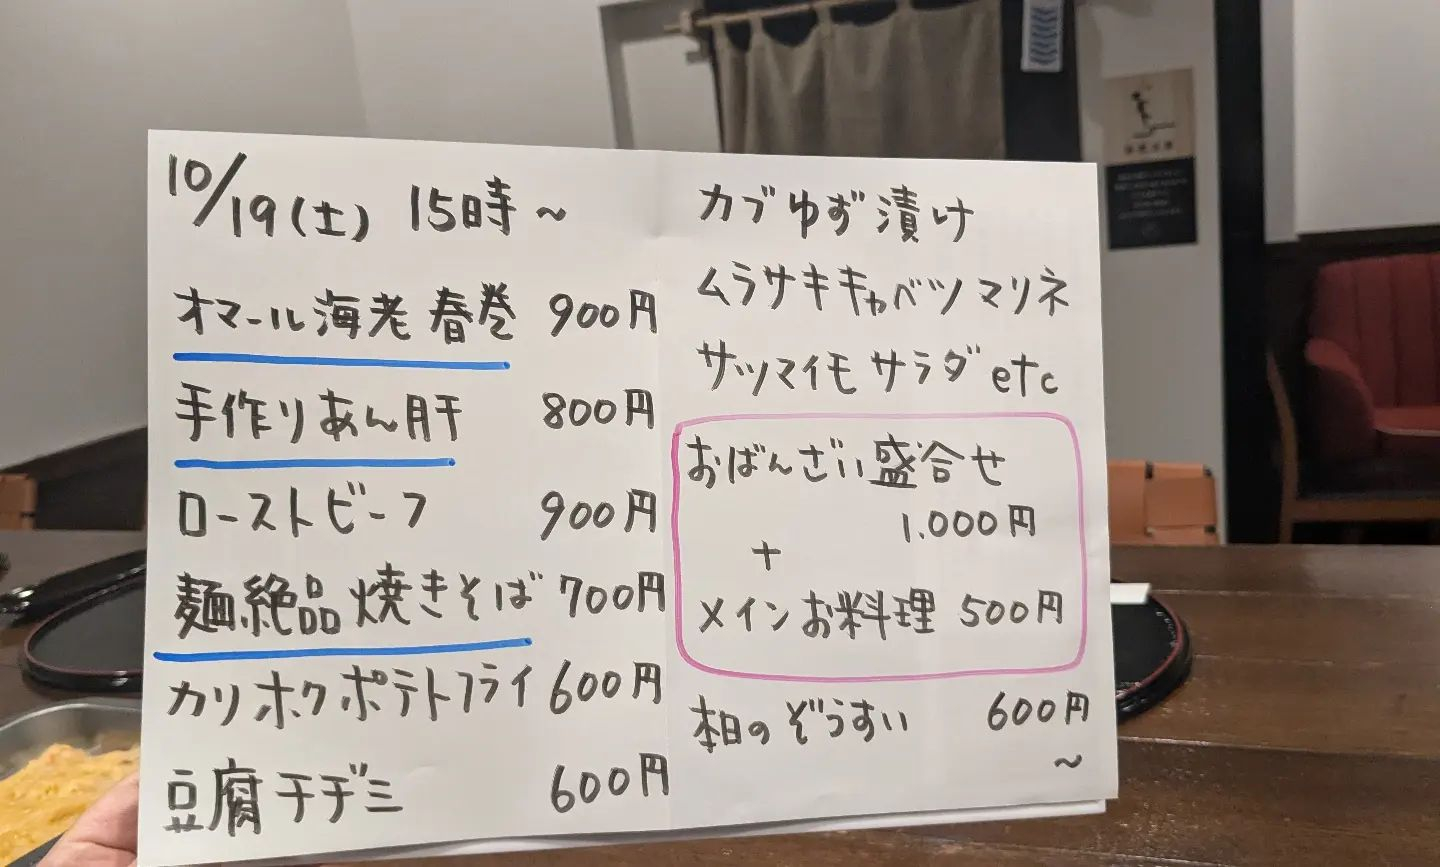 10/19(土) 15時～
オマール海老春巻 900円
手作りあん肝 800円
ローストビーフ 900円
麺絶品焼きそば 700円
カリホクポテトフライ 600円
豆腐チヂミ 600円
カブゆず漬け
ムラサキキャベツマリネ
サツマイモサラダetc
おばんざい盛合せ
1.000円
+
メインお料理 500円
本日のぞうすい 600円
～